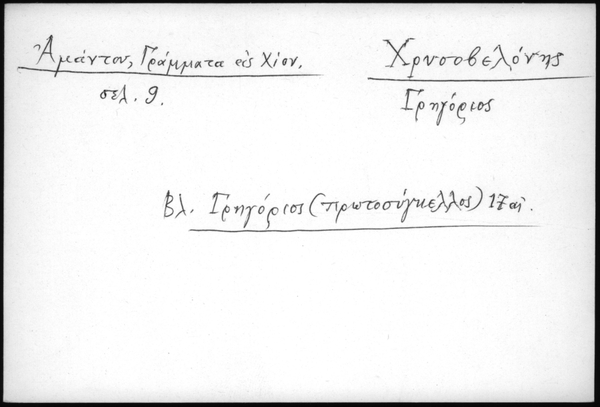 Ἀμάντου, Γράμματα εἰς Χίον.
σελ. 9.
Χρυσοβελόνης
Γρηγόριος
Βλ. Γρηγόριος (πρωτοσύγκελλος) 17 αἰ.